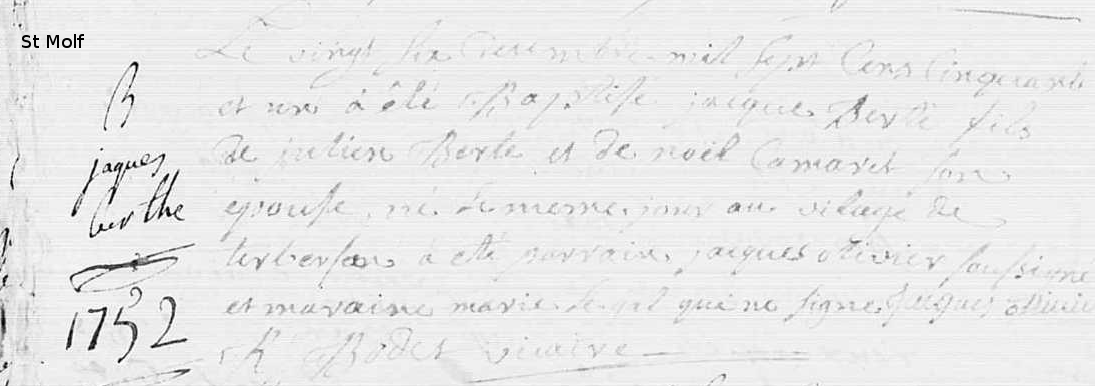 St Molf
B
jaques
berthe
1752
Le vingt six decembre mil sept Cens Cinquante
et un à été Baptise jacque Berte fils
de julien Berte et de noël Camaret son
epouse, né le meme jour au vilage de
à eté parrain jacques olivier soussigné
et maraine marie qui ne signe Jacques olivier
R Bodet vicaire